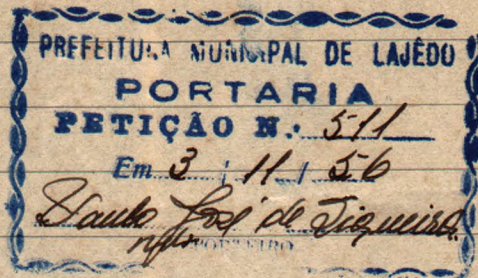 PREFEITURA MUNICIPAL DE LAJÊDO
PORTARIA
PETIÇÃO N.º 511
Em 3 / 11 / 56
José de Siqueira
PORTEIRO